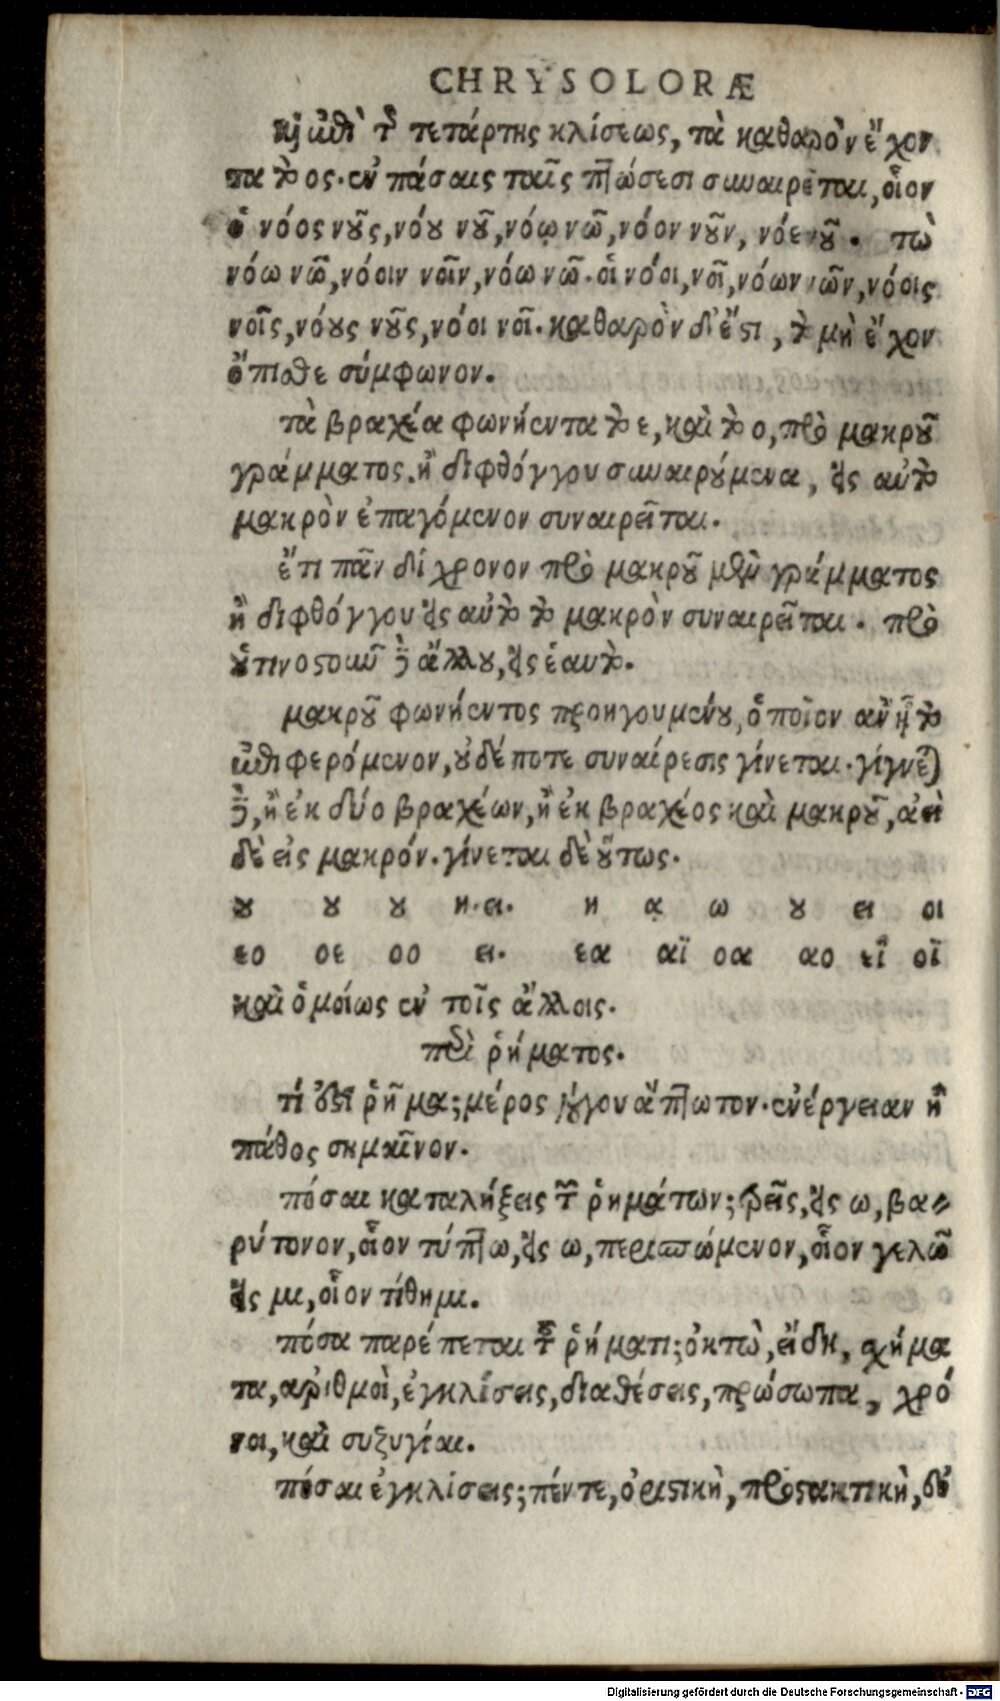 CHRYSOLORÆ
κỳ ἐπὶ τῆς τετάρτης κλίσεως, τὰ καθαρὸν ἔχον
τα τὸ ος. ἐν πάσαις ταῖς πτώσεσι συναιρεῖται, οἷον
ὁ νόος νοῦς, νόου νοῦ, νόῳ νῷ, νόον νοῦν, νόε νοῦ. τὼ
νόω νῶ, νόοιν νοῖν, νόω νῶ. οἱ νόοι, νοῖ, νόων νῶν, νόοις
νοῖς, νόους νοῦς, νόοι νοῖ. καθαρὸν δ' ἔστι, τὸ μὴ ἔχον
ὄπισθε σύμφωνον.
τὰ βραχέα φωνήεντα τὸ ε, καὶ τὸ ο, πρὸ μακροῦ
γράμματος. ἢ διφθόγγου συναιρούμενα, εἰς αὐτὸ
μακρὸν ἐπαγόμενον συναιρεῖται.
ἔτι πᾶν δίχρονον πρὸ μακροῦ μὲν γράμματος
ἢ διφθόγγου εἰς αὐτὸ τὸ μακρὸν συναιρεῖται. πρὸ
οὗτινοσοῦν δὲ ἄλλου, εἰς ἑαυτό.
μακροῦ φωνήεντος προηγουμένου, ὁποῖον ἂν ᾖ τὸ
ἐπιφερόμενον, οὐδέποτε συναίρεσις γίνεται. γίγνεται
δὲ, ἢ ἐκ δύο βραχέων, ἢ ἐκ βραχέος καὶ μακροῦ, ἀεὶ
δὲ εἰς μακρόν. γίνεται δὲ οὕτως.
ου ου ου η. ει. η ᾳ ω ου ει οι
εο οε οο ει. εα αϊ οα αο εϊ οϊ
καὶ ὁμοίως ἐν τοῖς ἄλλοις.
περὶ ῥήματος.
τί ἐστι ῥῆμα; μέρος λόγου ἄπτωτον. ἐνέργειαν ἢ
πάθος σημαῖνον.
πόσαι καταλήξεις τῶν ῥημάτων; τρεῖς, εἰς ω, βα-
ρύτονον, οἷον τύπτω, εἰς ω, περισπώμενον, οἷον γελῶ
εἰς μι, οἷον τίθημι.
πόσα παρέπεται τῷ ῥήματι; ὀκτὼ, εἴδη, σχήμα
τα, ἀριθμοὶ, ἐγκλίσεις, διαθέσεις, πρόσωπα, χρό
νοι, καὶ συζυγίαι.
πόσαι ἐγκλίσεις; πέντε, ὁριστικὴ, προστακτικὴ, εὐ
Digitalisierung gefördert durch die Deutsche Forschungsgemeinschaft - DFG